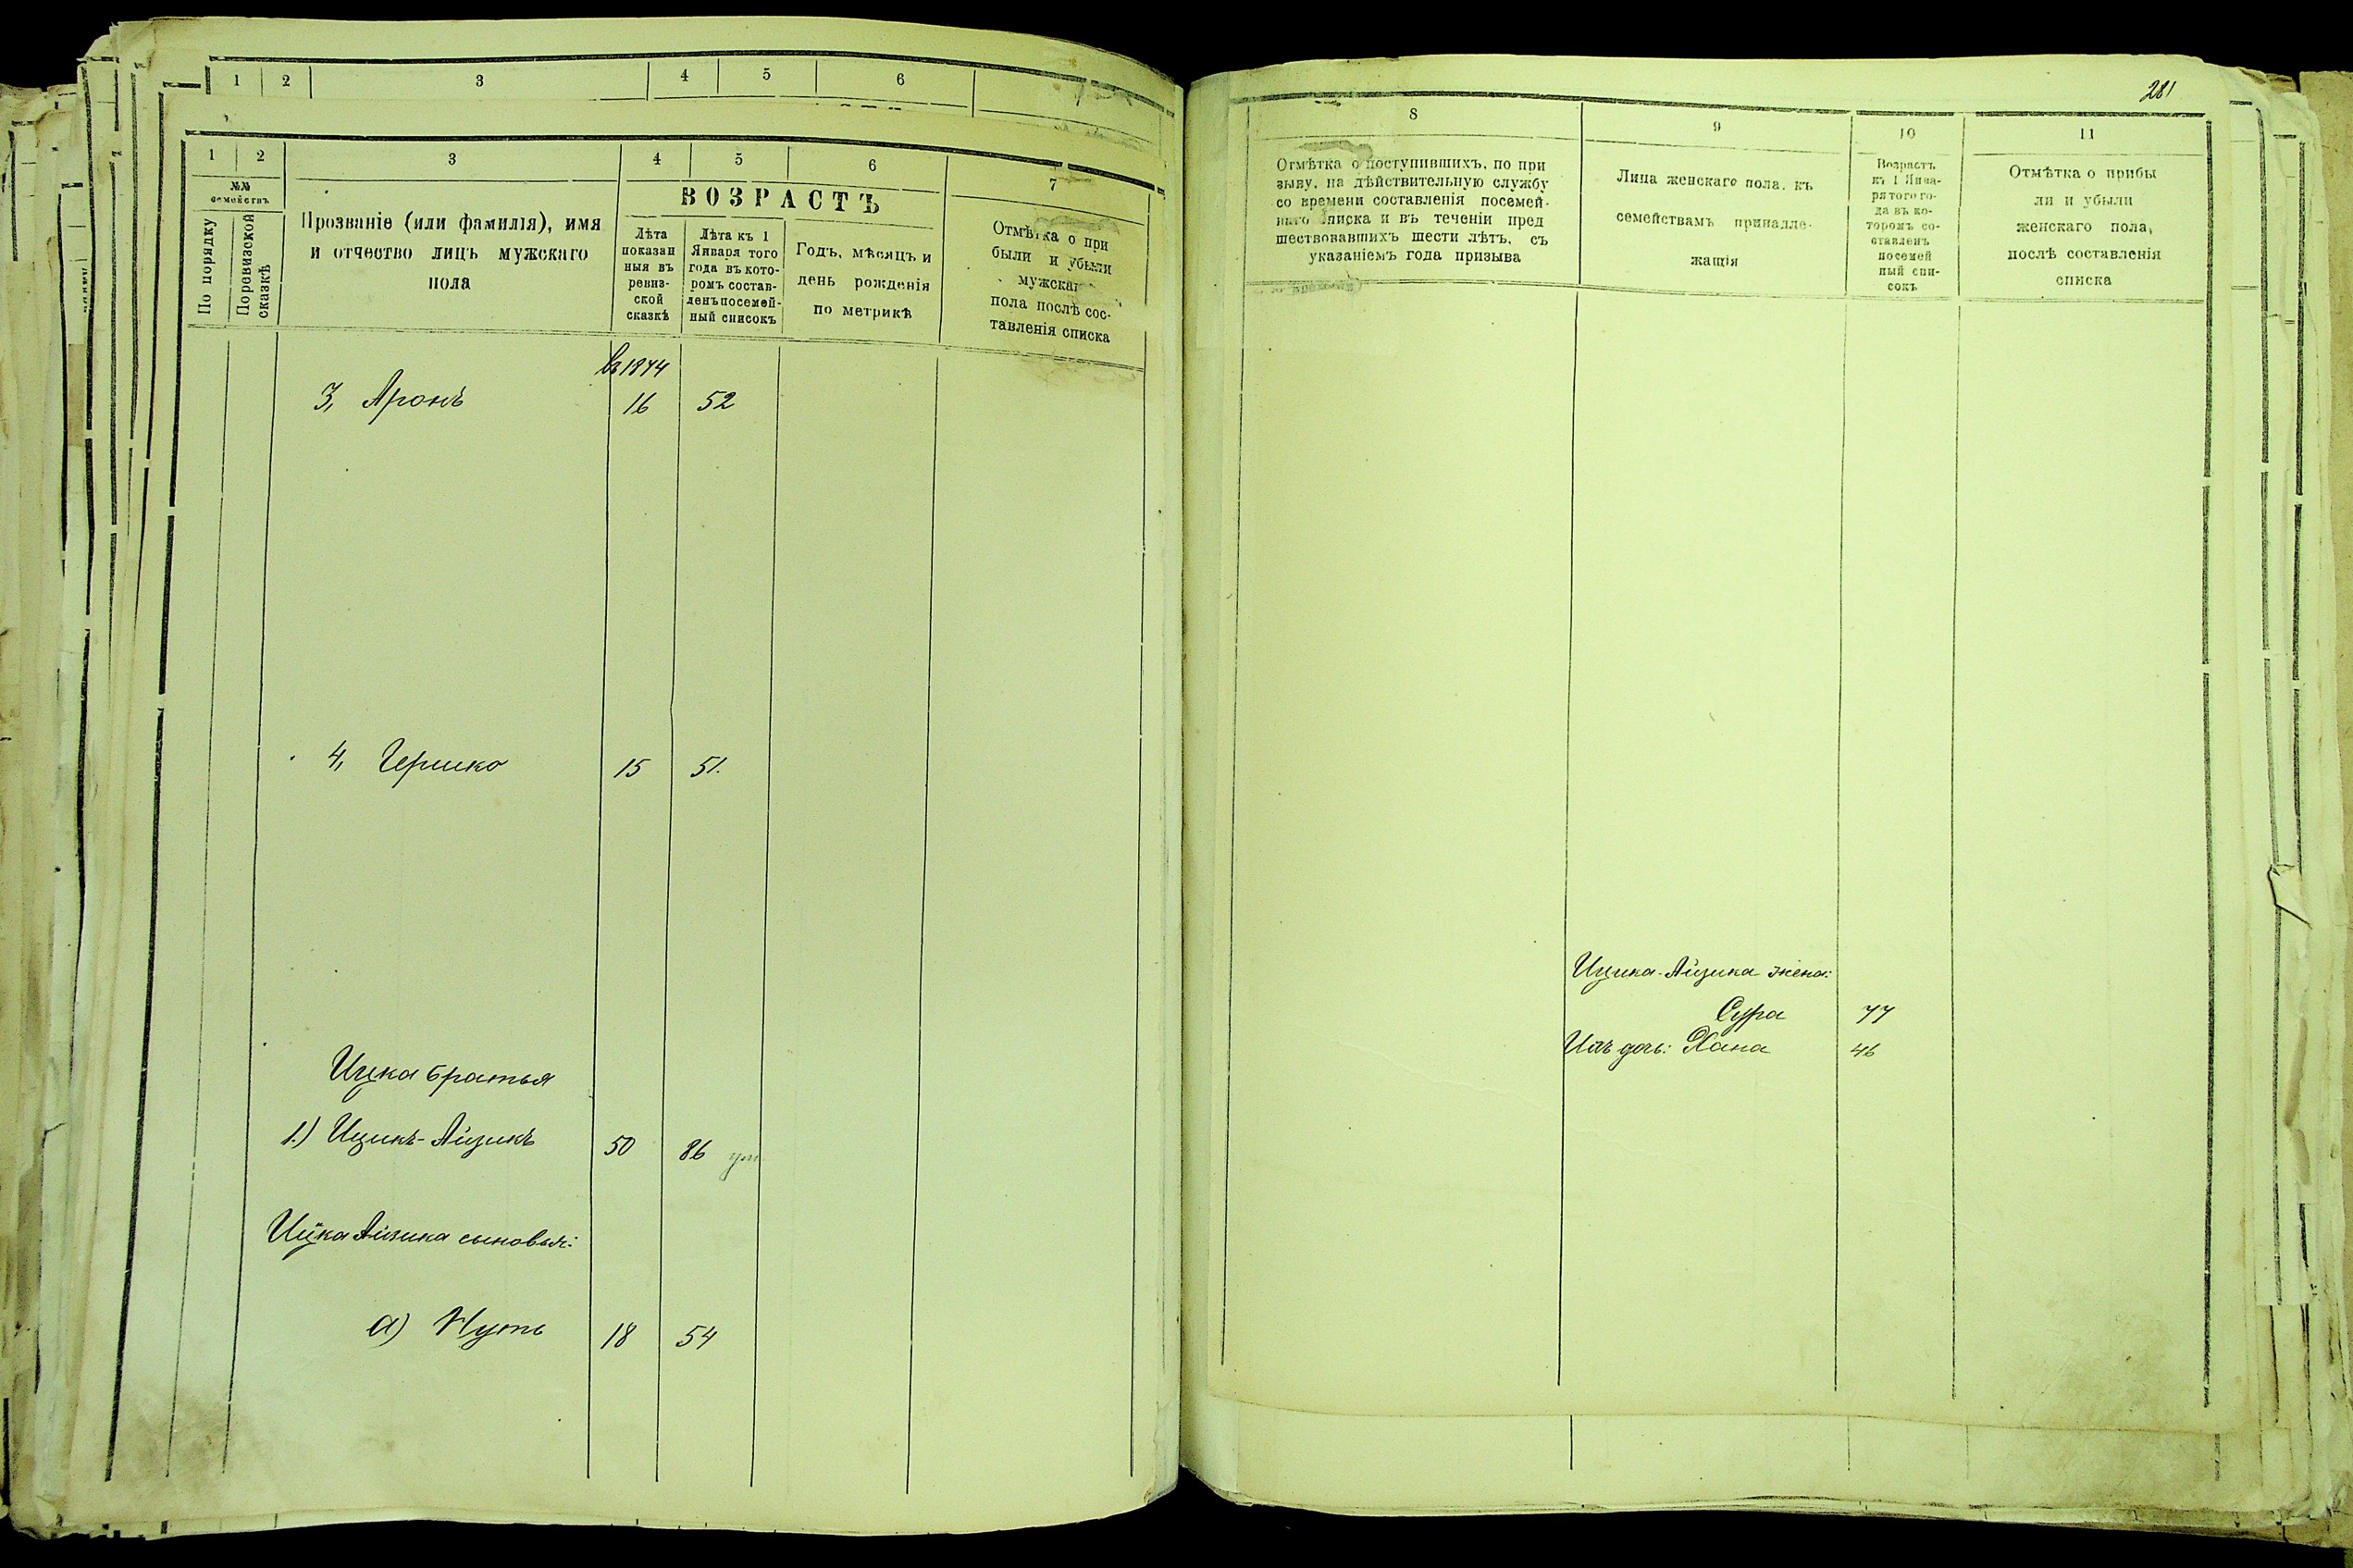 1 2 3 4 5 6
1 2 3 4 5 6 7
№№ семействъ
По порядку
Поревизской сказкѣ
Прозваніе (или фамилія), имя
и отчество лицъ мужскаго
пола
ВОЗРАСТЪ
Лѣта
показан
ныя въ
ревиз-
ской
сказкѣ
Лѣта къ 1
Января того
года въ кото-
ромъ состав-
ленъ посемей-
ный списокъ
Годъ, мѣсяцъ и
день рожденія
по метрикѣ
Отмѣтка о при
были и убыли
мужскаго
пола послѣ сос-
тавленія списка
въ 1874
3, Аронъ 16 52
4, Гершко 15 51.
Ицка братья
1.) Ицикъ-Айзикъ 50 86 ум
Ицка Айзика сыновья:
а) Нута 18 54
281
8 9 10 11
Отмѣтка о поступившихъ, по при
зыву, на дѣйствительную службу
со времени составленія посемей-
наго списка и въ теченіи пред
шествовавшихъ шести лѣтъ, съ
указаніемъ года призыва
Лица женскаго пола, къ
семействамъ принадле-
жащія
Возрастъ
къ 1 Янва-
ря того го-
да въ ко-
торомъ со-
ставленъ
посемей
ный спи-
сокъ
Отмѣтка о прибы
ли и убыли
женскаго пола,
послѣ составленія
списка
Ицика-Айзика жена:
Сура 77
Ихъ дочь: Хана 46